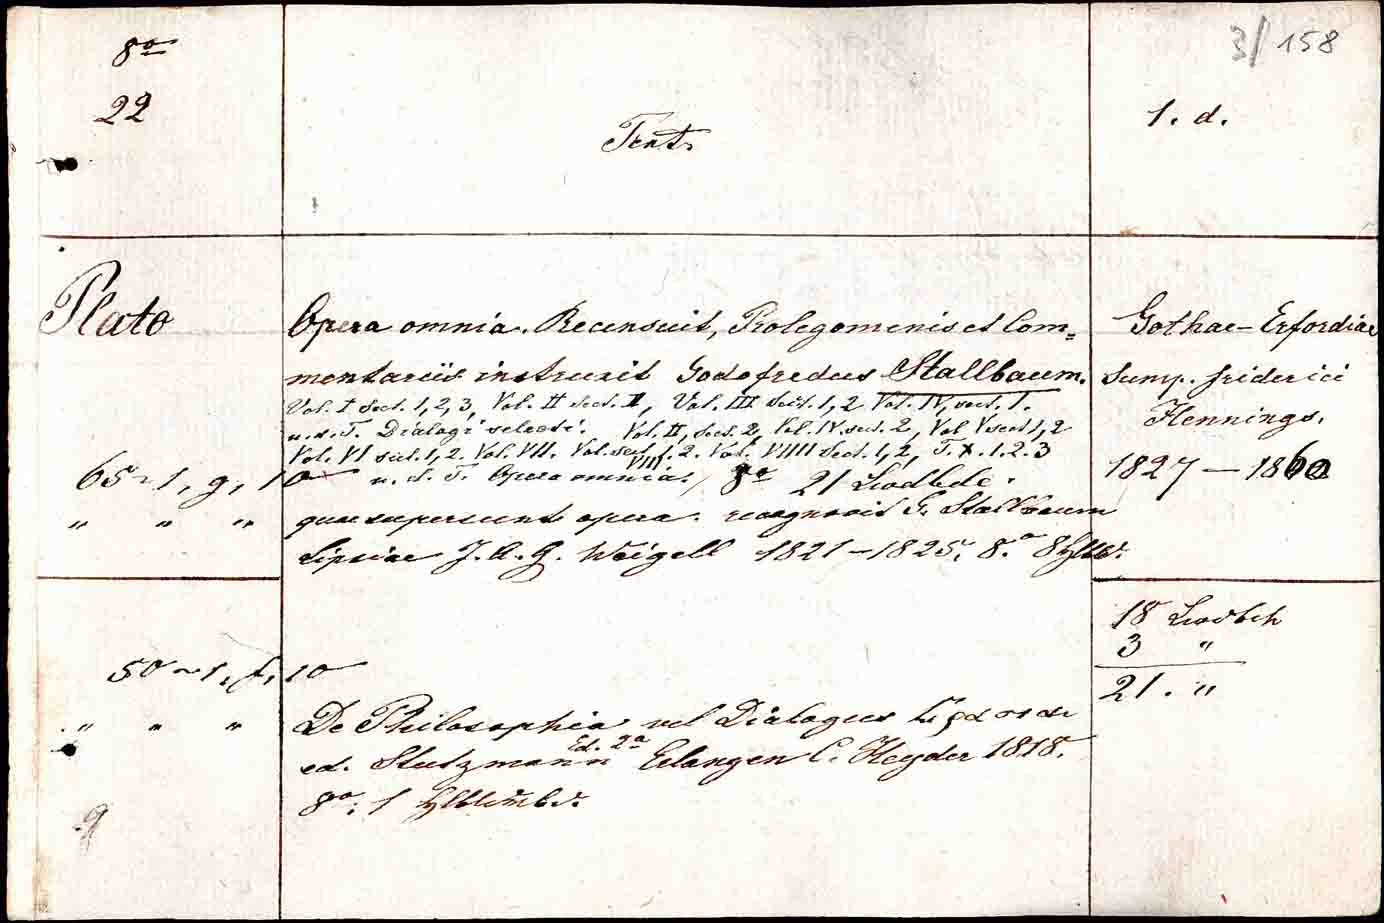 8º
3/158
22
1. d.
Text.
Plato
Opera omnia. Recensuit, Prolegomenis et Com=
Gothae - Erfordiae
mentariis instruxit Godofredus Stallbaum.
Sump. Friderici
Vol. I Sect. 1, 2, 3, Vol. II Sect. II, Vol. III Sect. 1, 2 Vol. IV, sect. 1.
Hennings.
u. d. T. Dialogi selecti. Vol. II, Sect. 2, Vol. IV sect. 2, Vol V sect 1, 2
Vol. VI sect. 1, 2. Vol. VII. Vol. VIII sect. 1. 2. Vol. VIIII Sect. 1, 2, T. X. 1. 2. 3
1827 — 1860
65~1, g, 10 u. d. T. Opera omnia, 8º 21
" " " quae supersunt opera. recognovit G. Stallbaum
Lipsiae J. A. G. Weigell 1821 — 1825. 8.º 8
18
3 "
21. "
50~1, f, 10
" " " De Philosophia vel Dialogus
ed. Stutzmann Ed. 2ª Erlangen C. Heyder 1818.
8º. 1
9